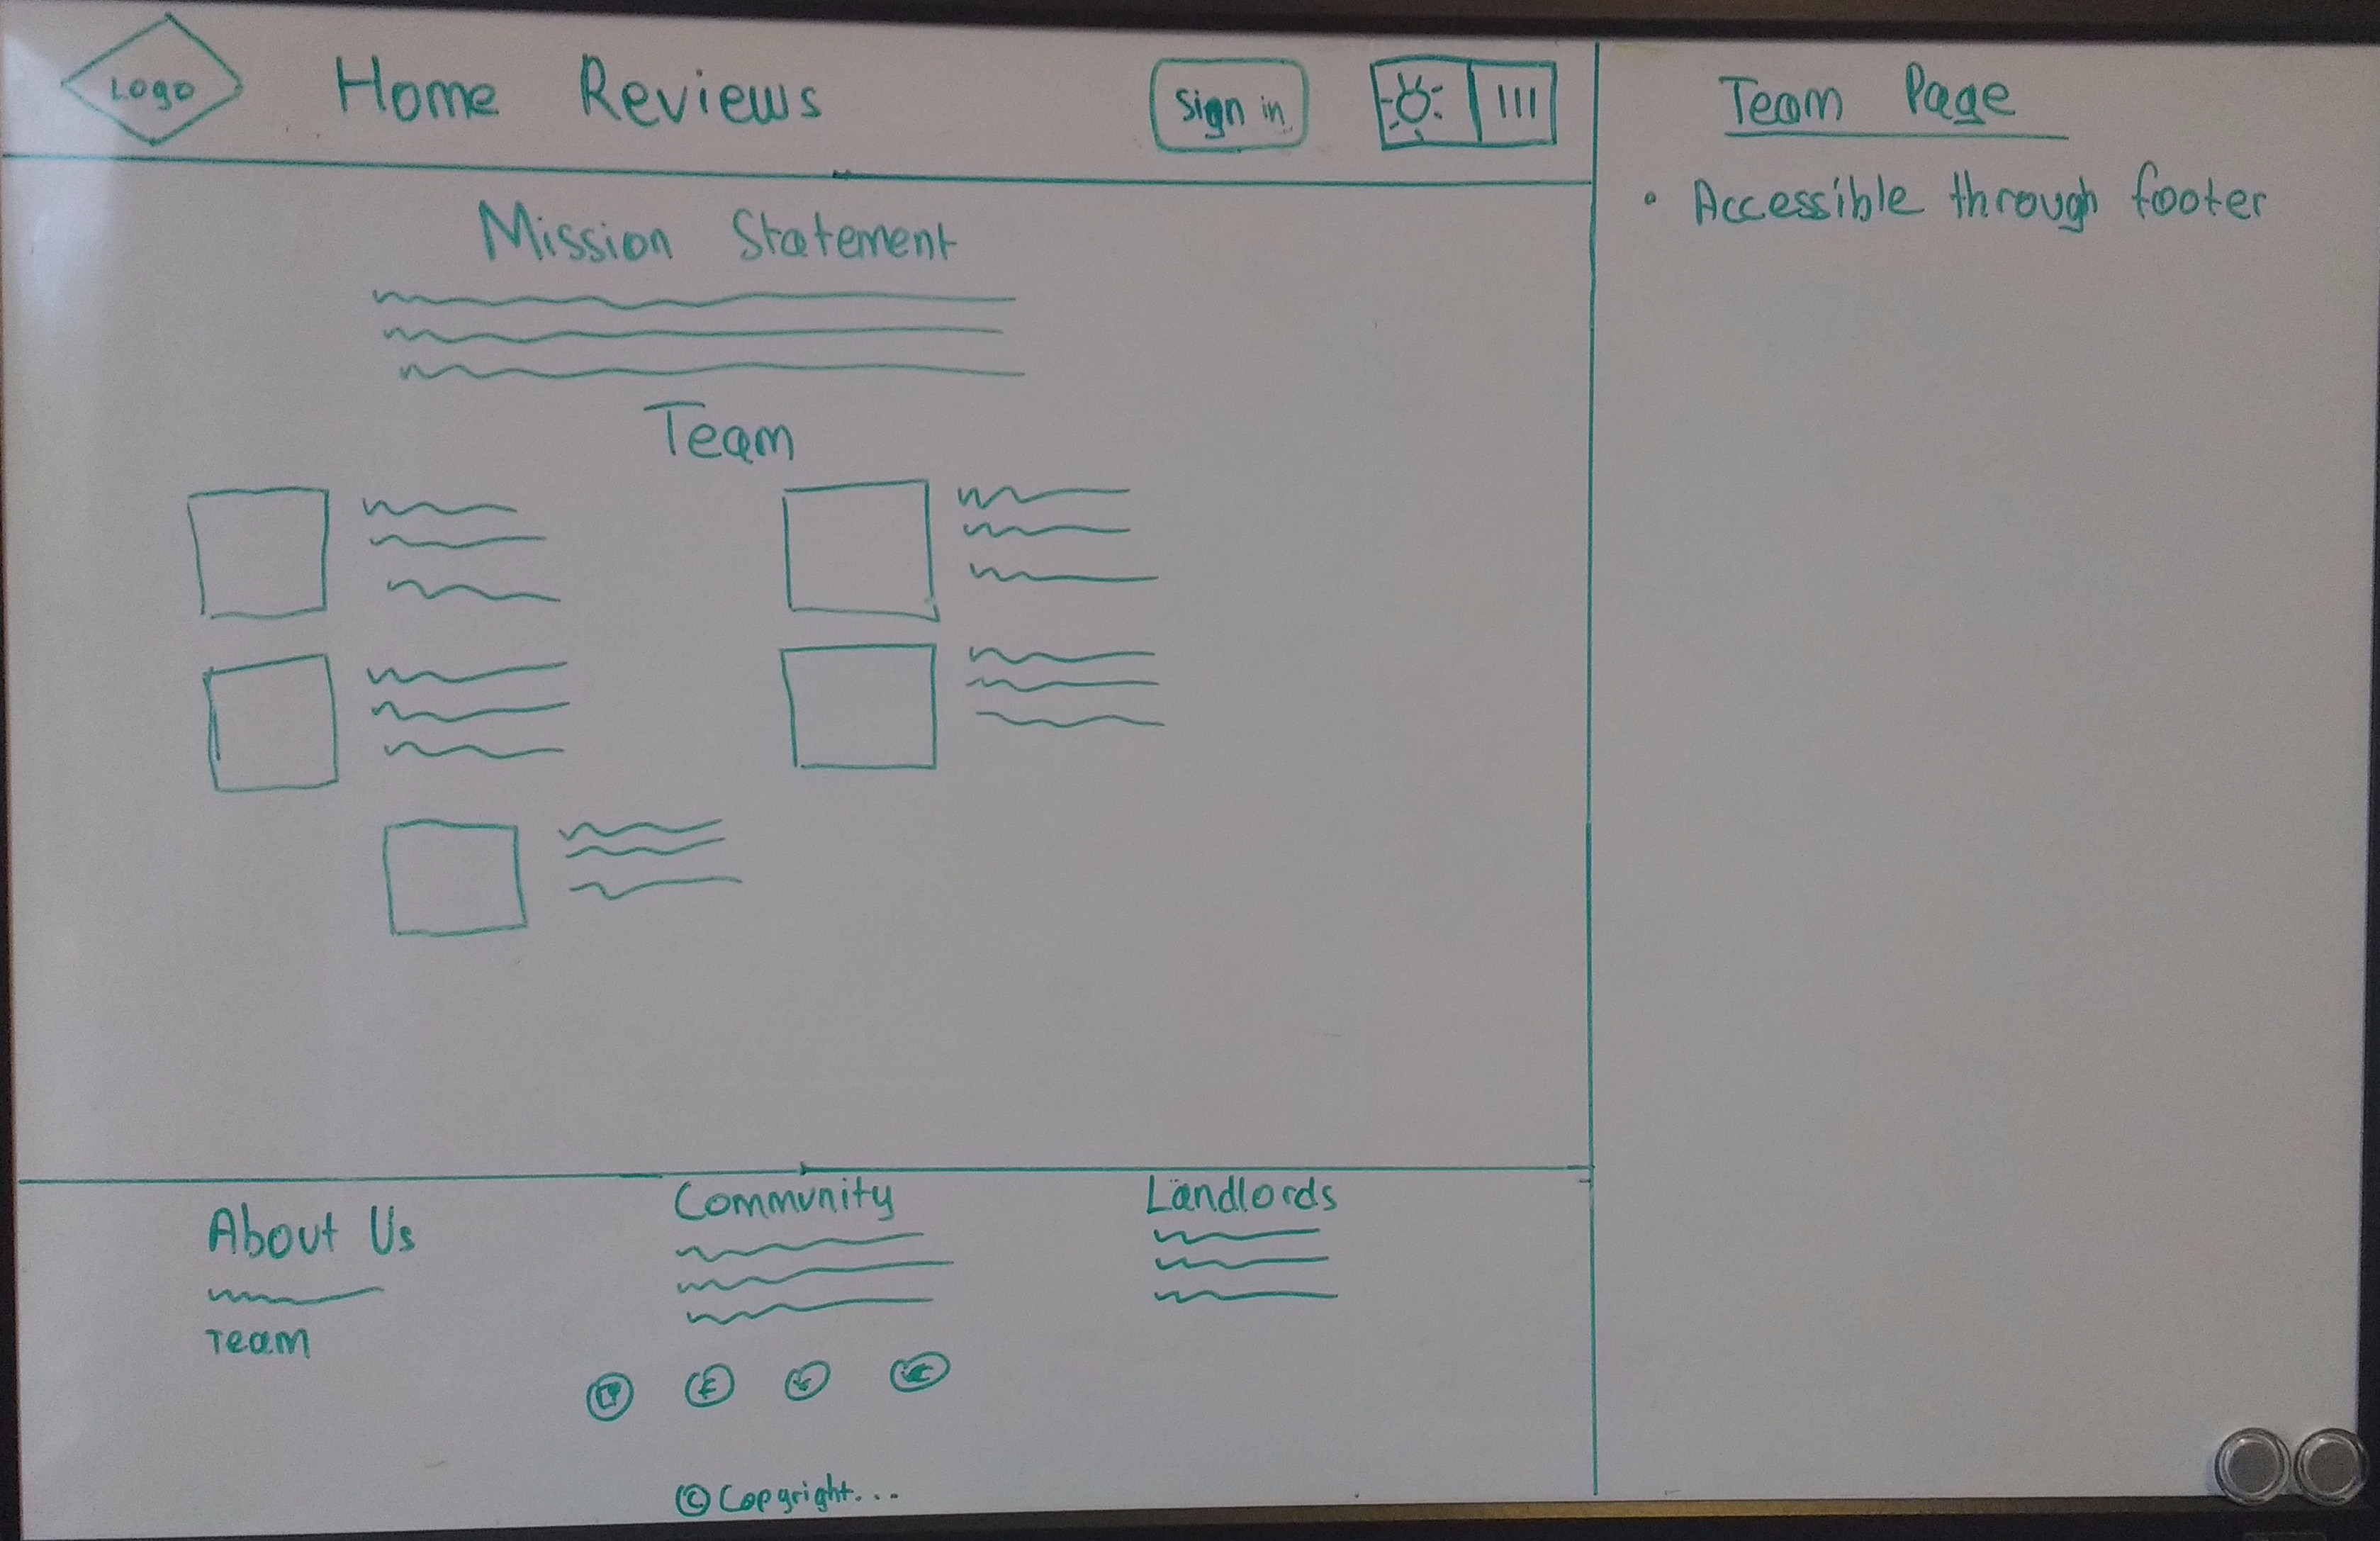 Logo Home Reviews Sign in
Mission Statement
Team
About Us
Team
Community
Landlords
© Copyright...
Team Page
• Accessible through footer